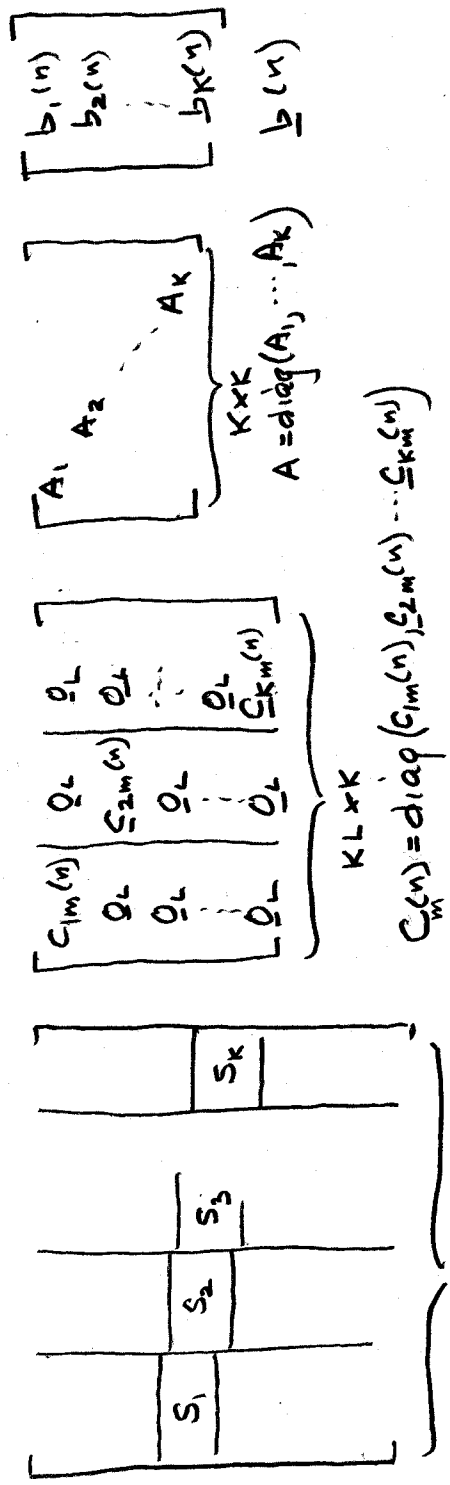 [ S₁ | S₂ | S₃ | Sₖ ]
[ C₁ₘ(n) | 0_L | 0_L
0_L | C₂ₘ(n) | 0_L
0_L | 0_L | ⋮
⋮ | ⋮ | 0_L
0_L | 0_L | C_Kₘ(n) ]
KL × K
Cₘ(n) = diag(C₁ₘ(n), C₂ₘ(n) ... C_Kₘ(n))
[ A₁
A₂
⋱
A_K ]
K×K
A = diag(A₁, ..., A_K)
[ b₁(n)
b₂(n)
⋮
b_K(n) ]
b(n)